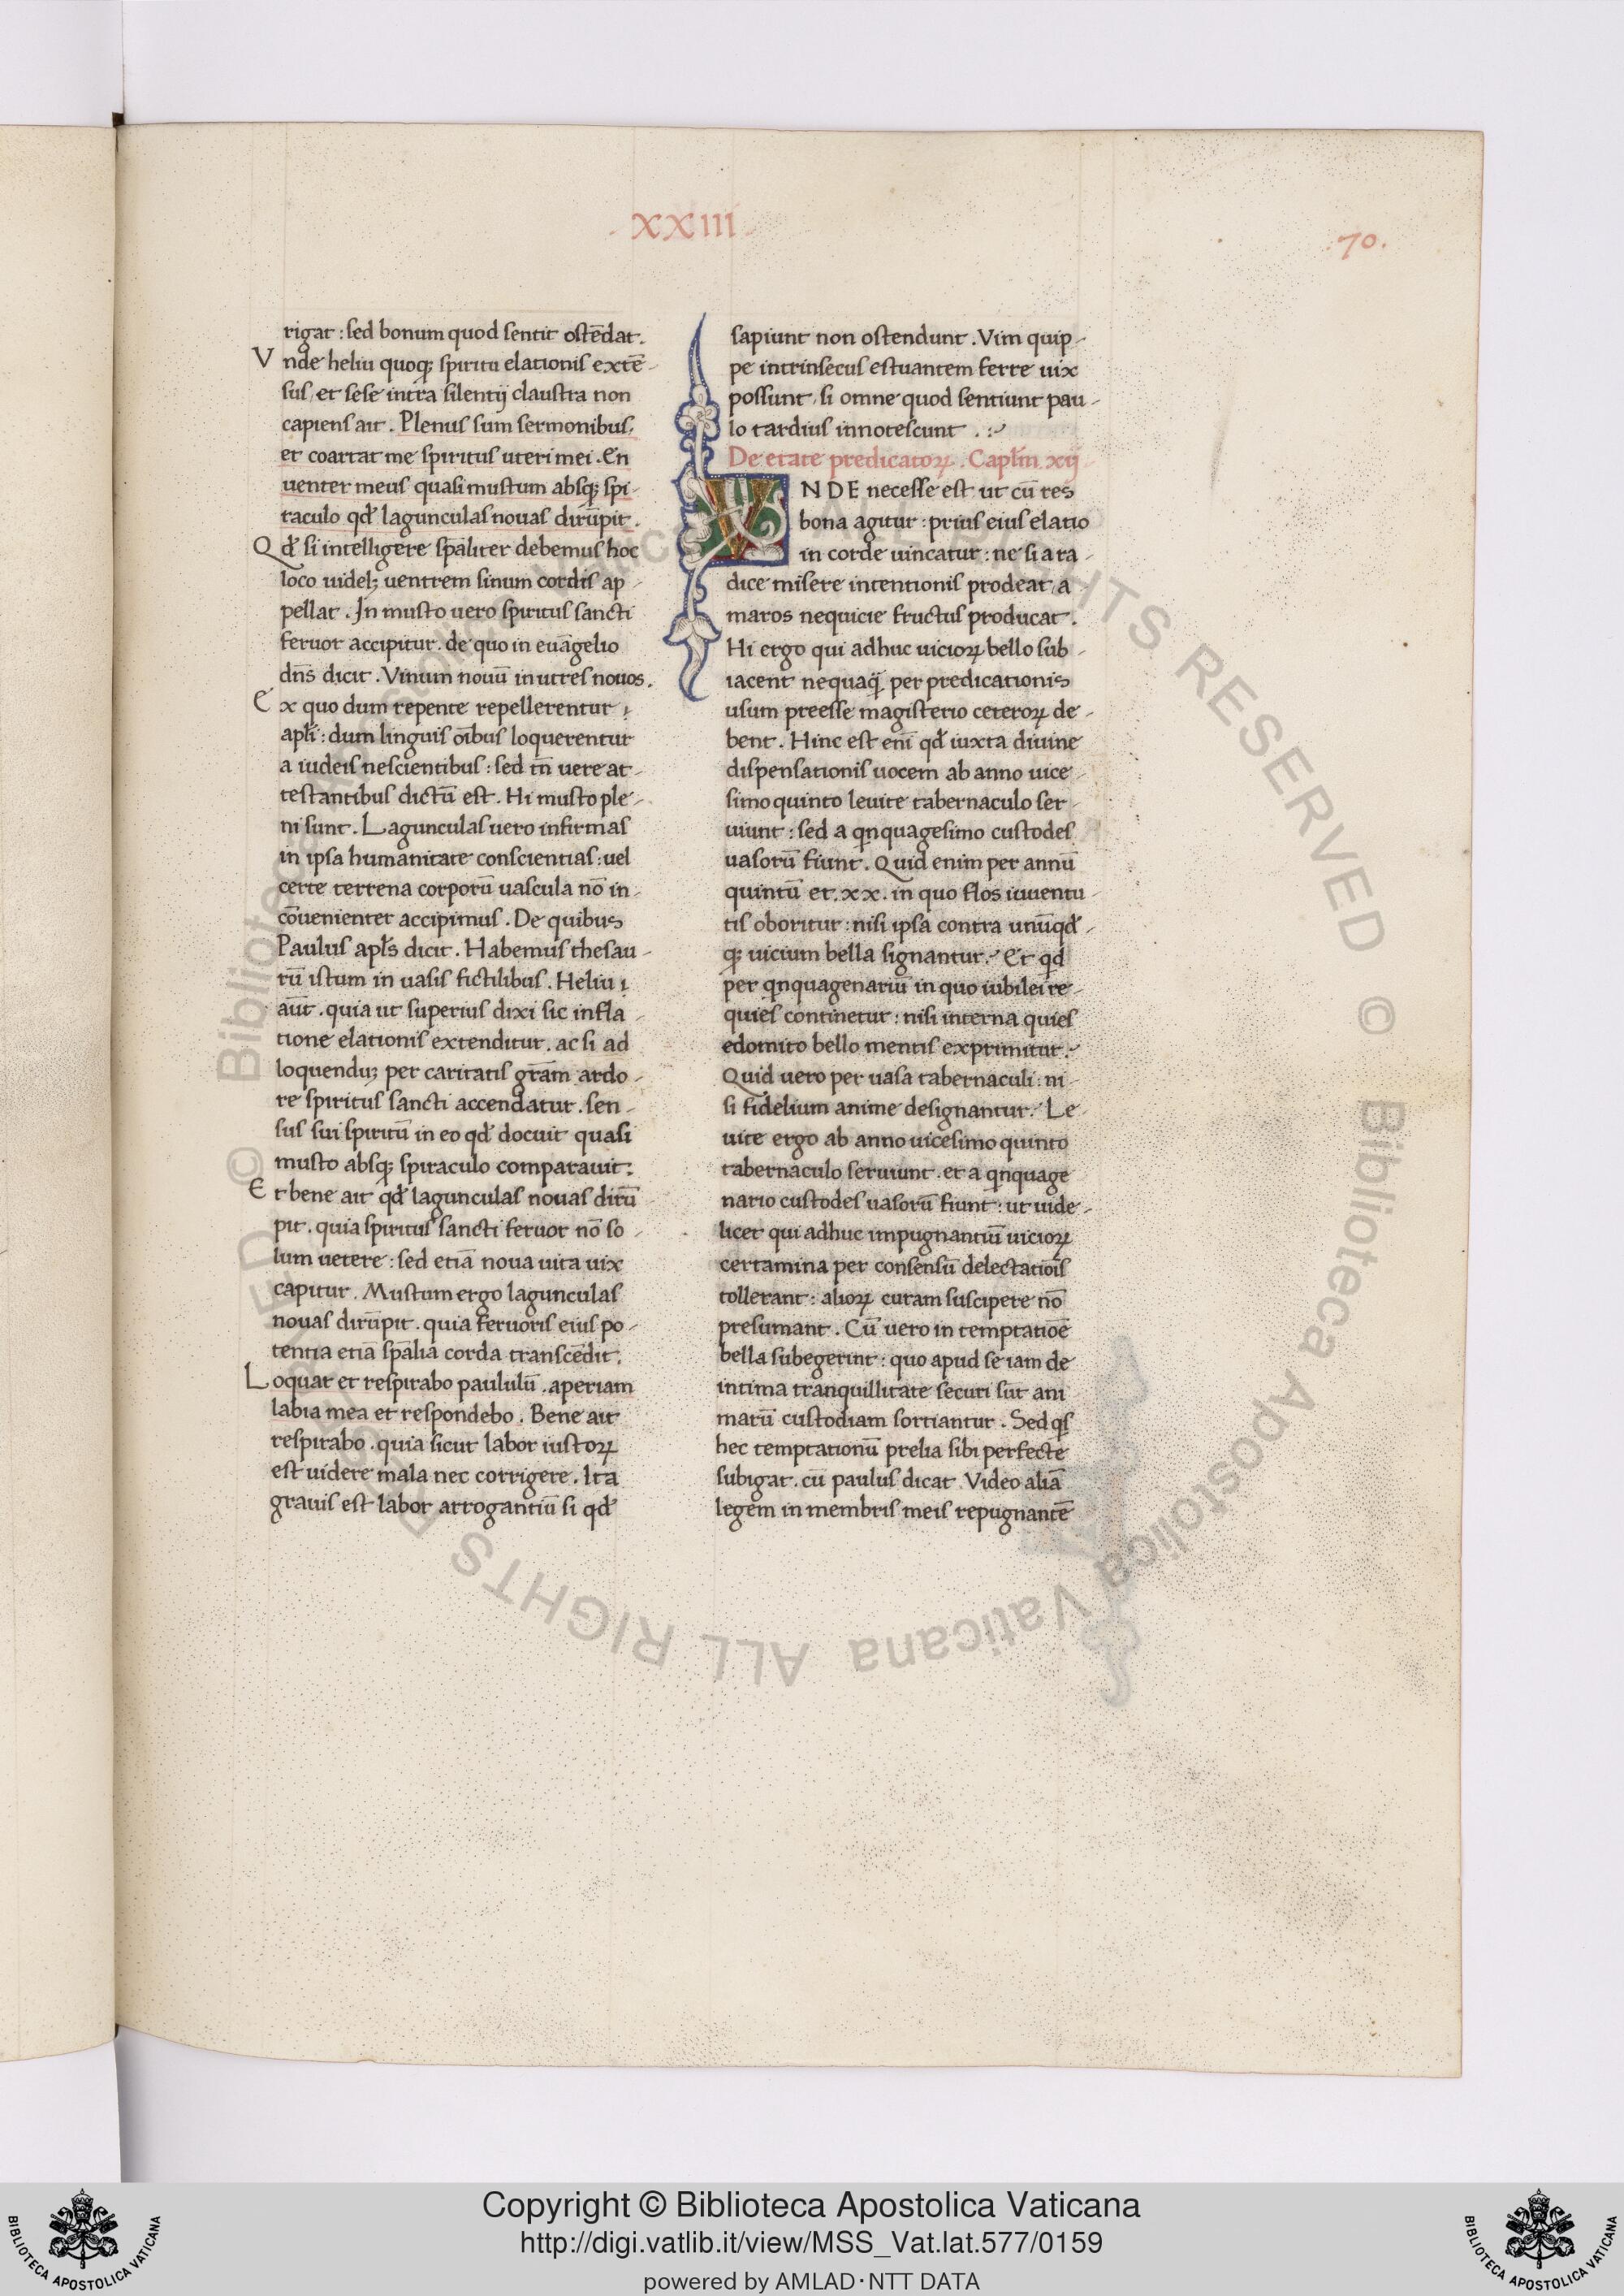 XXIII
70.
rigat : sed bonum quod sentit ostēdat .
Vnde heliu quoq; spiritu elationis extē-
sus, et sese intra silentij claustra non
capiens ait . Plenus sum sermonibus,
et coartat me spiritus uteri mei . En
uenter meus quasi mustum absq; spi-
raculo qđ lagunculas nouas dirūpit .
Qđ si intelligere spāliter debemus hoc
loco uidelꝫ uentrem sinum cordis ap-
pellat . In musto uero spiritus sancti
feruor accipitur . de quo in euāgelio
dn̄s dicit . Vinum nouū in utres nouos .
Ex quo dum repente repellerentur
apłi : dum linguis oībus loquerentur
a iudeis nescientibus : sed tn̄ uere at-
testantibus dictū est . Hi musto ple-
ni sunt . Lagunculas uero infirmas
in ipsa humanitate conscientias : uel
certe terrena corporū uascula nō in-
cōuenienter accipimus . De quibus
Paulus apłs dicit . Habemus thesau-
rū istum in uasis fictilibus . Heliu
aūt . quia ut superius dixi sic infla-
tione elationis extenditur . ac si ad
loquenduꝫ per caritatis grām ardo-
re spiritus sancti accendatur . sen-
sus sui spiritū in eo qđ docuit quasi
musto absq; spiraculo comparauit :
Et bene ait qđ lagunculas nouas dirū
pit . quia spiritus sancti feruor nō so-
lum uetere : sed etiā noua uita uix
capitur . Mustum ergo lagunculas
nouas dirūpit . quia feruoris eius po-
tentia etiā spālia corda transcēdit .
Loquar et respirabo paululū . aperiam
labia mea et respondebo . Bene ait
respirabo . quia sicut labor iustoꝝ
est uidere mala nec corrigere . Ita
grauis est labor arrogantiū si qđ
sapiunt non ostendunt . Vim quip-
pe intrinsecus estuantem ferre uix
possunt, si omne quod sentiunt pau-
lo tardius innotescunt .
De etate predicatoꝝ . Capłm xij
VNDE necesse est ut cū res
bona agitur : prius eius elatio
in corde uincatur : ne si a ra-
dice misere intentionis prodeat, a
maros nequicie fructus producat .
Hi ergo qui adhuc uicioꝝ bello sub-
iacent nequaq̄ per predicationis
usum preesse magisterio ceteroꝝ de-
bent . Hinc est enī qđ iuxta diuine
dispensationis uocem ab anno uice-
simo quinto leuite tabernaculo ser-
uiunt : sed a qnquagesimo custodes
uasorū fiunt . Quid enim per annū
quintū et . xx . in quo flos iuuentu-
tis oboritur : nisi ipsa contra unūqđ-
q; uicium bella signantur. Et qd
per qnquagenariū in quo iubilei re-
quies continetur : nisi interna quies
edomito bello mentis exprimitur.
Quid uero per uasa tabernaculi : ni-
si fidelium anime designantur. Le-
uite ergo ab anno uicesimo quinto
tabernaculo seruiunt . et a qnquage
nario custodes uasorū fiunt : ut uide-
licet qui adhuc impugnantiū uicioꝝ
certamina per consensū delectatiōis
tollerant : alioꝝ curam suscipere nō
presumant . Cū uero in temptatiōe
bella subegerint : quo apud se iam de
intima tranquillitate securi sūt ani
marū custodiam sortiantur . Sed qs
hec temptationū prelia sibi perfecte
subigat . cū paulus dicat . Video aliā
legem in membris meis repugnantē
© Biblioteca Apostolica Vaticana ALL RIGHTS RESERVED © Biblioteca Apostolica Vaticana ALL RIGHTS RESERVED
Copyright © Biblioteca Apostolica Vaticana
http://digi.vatlib.it/view/MSS_Vat.lat.577/0159
powered by AMLAD·NTT DATA
BIBLIOTECA APOSTOLICA VATICANA
BIBLIOTECA APOSTOLICA VATICANA